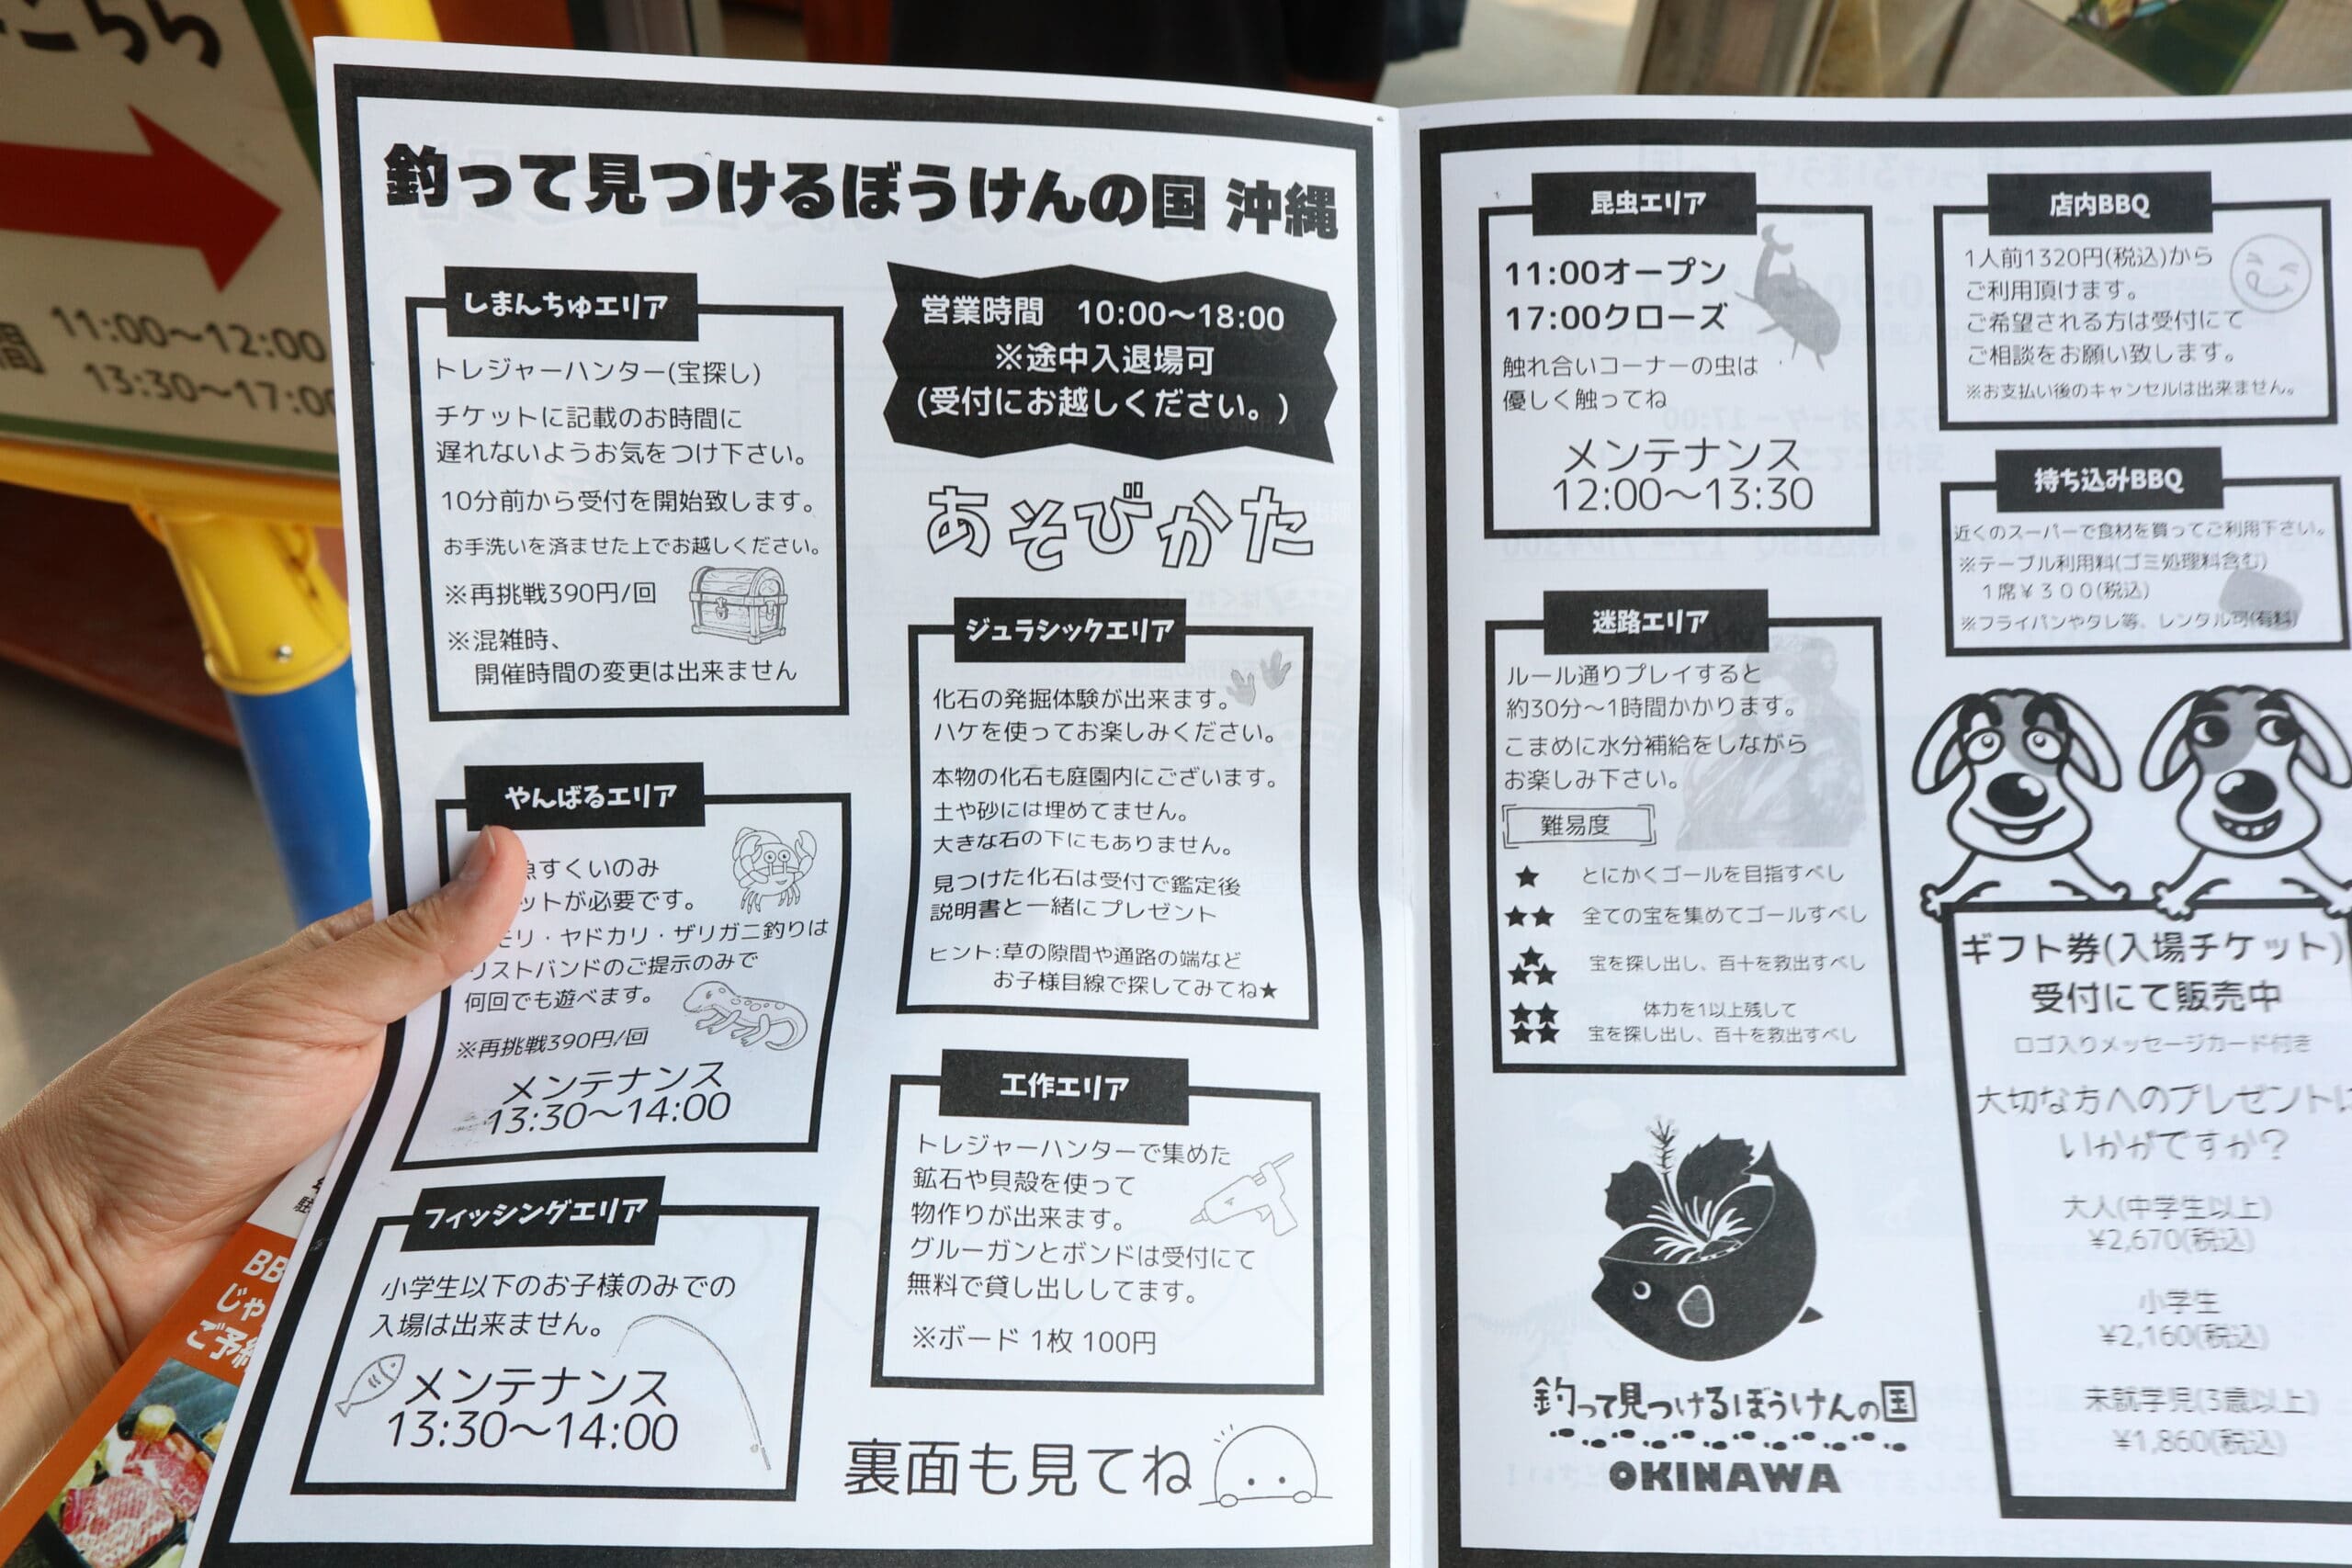 こちら
間 11:00～12:00
13:30～17:00
釣って見つけるぼうけんの国 沖縄
しまんちゅエリア
トレジャーハンター(宝探し)
チケットに記載のお時間に
遅れないようお気をつけ下さい。
10分前から受付を開始致します。
お手洗いを済ませた上でお越しください。
※再挑戦390円/回
※混雑時、
開催時間の変更は出来ません
やんばるエリア
魚すくいのみ
ットが必要です。
モリ・ヤドカリ・ザリガニ釣りは
リストバンドのご提示のみで
何回でも遊べます。
※再挑戦390円/回
メンテナンス
13:30～14:00
フィッシングエリア
小学生以下のお子様のみでの
入場は出来ません。
メンテナンス
13:30～14:00
営業時間 10:00～18:00
※途中入退場可
(受付にお越しください。)
あそびかた
ジュラシックエリア
化石の発掘体験が出来ます。
ハケを使ってお楽しみください。
本物の化石も庭園内にございます。
土や砂には埋めてません。
大きな石の下にもありません。
見つけた化石は受付で鑑定後
説明書と一緒にプレゼント
ヒント:草の隙間や通路の端など
お子様目線で探してみてね★
工作エリア
トレジャーハンターで集めた
鉱石や貝殻を使って
物作りが出来ます。
グルーガンとボンドは受付にて
無料で貸し出ししてます。
※ボード 1枚 100円
裏面も見てね
昆虫エリア
11:00オープン
17:00クローズ
触れ合いコーナーの虫は
優しく触ってね
メンテナンス
12:00～13:30
迷路エリア
ルール通りプレイすると
約30分～1時間かかります。
こまめに水分補給をしながら
お楽しみ下さい。
難易度
★ とにかくゴールを目指すべし
★★ 全ての宝を集めてゴールすべし
★★★ 宝を探し出し、百十を救出すべし
★★★★ 体力を1以上残して
宝を探し出し、百十を救出すべし
釣って見つけるぼうけんの国
OKINAWA
店内BBQ
1人前1320円(税込)から
ご利用頂けます。
ご希望される方は受付にて
ご相談をお願い致します。
※お支払い後のキャンセルは出来ません。
持ち込みBBQ
近くのスーパーで食材を買ってご利用下さい。
※テーブル利用料(ゴミ処理料含む)
1席￥300(税込)
※フライパンやタレ等、レンタル可(有料)
ギフト券(入場チケット)
受付にて販売中
ロゴ入りメッセージカード付き
大切な方へのプレゼントに
いかがですか？
大人(中学生以上)
¥2,670(税込)
小学生
¥2,160(税込)
未就学児(3歳以上)
¥1,860(税込)
BB
じゃ
ご予約